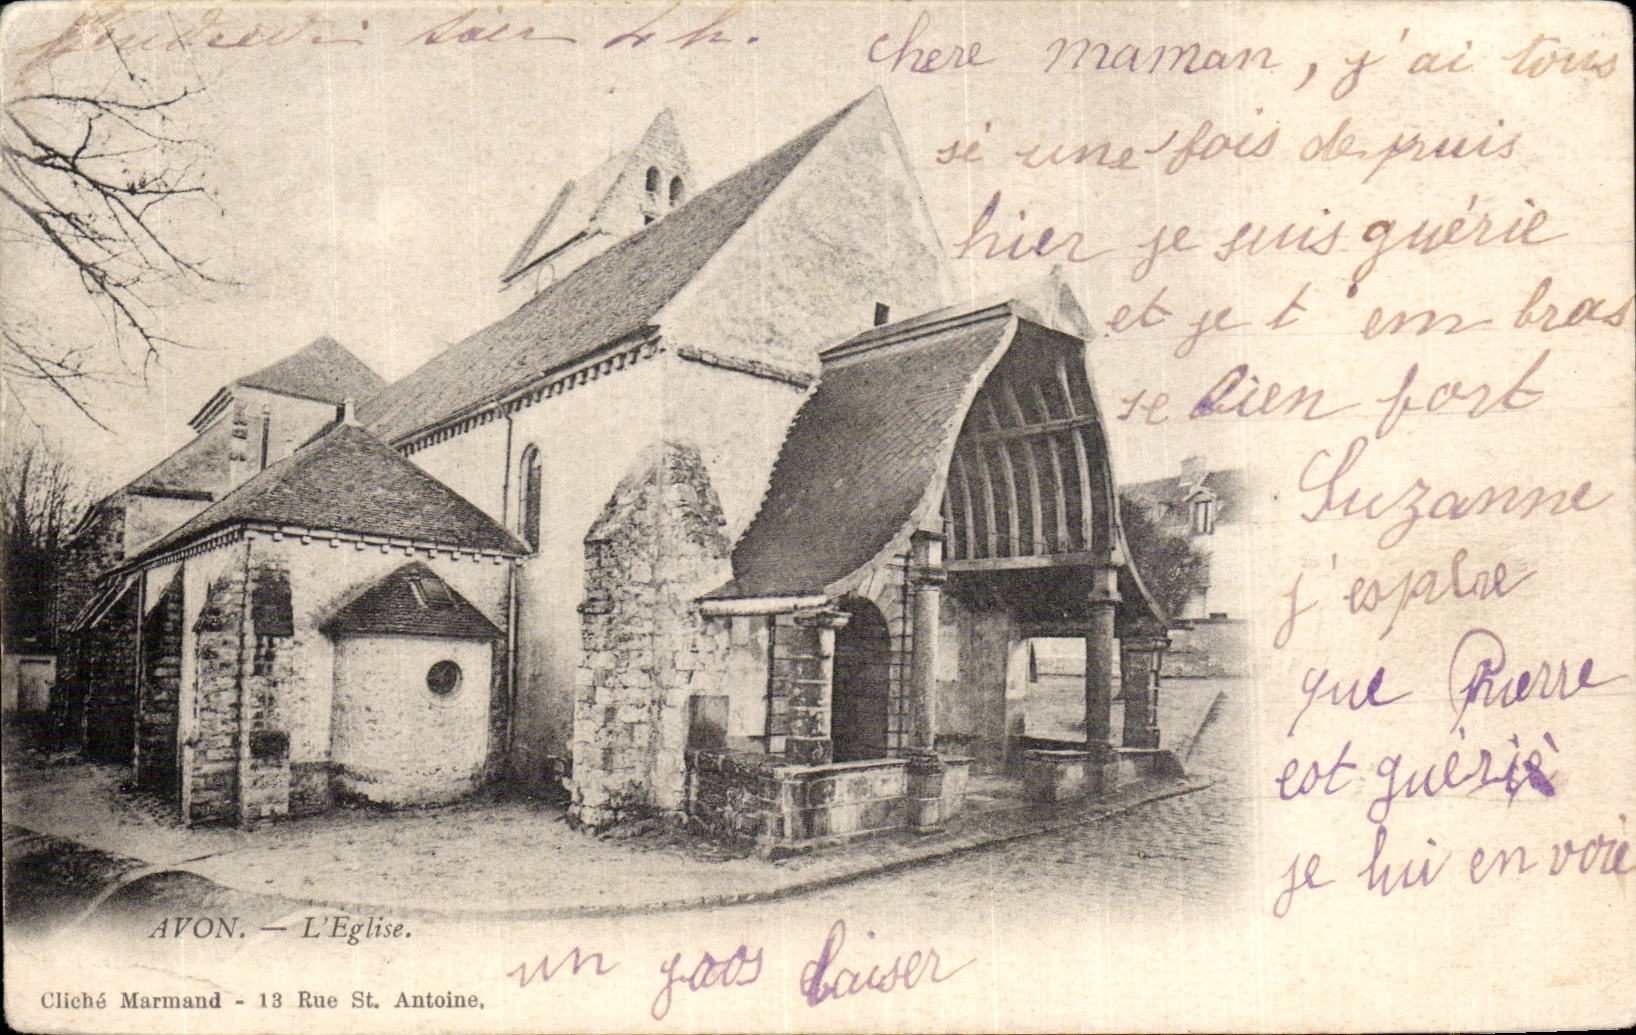 Vendredi soir 4 h.
chere maman, j'ai tous
sé une fois de puis
hier je suis guérie
et je t'em bras
se bien fort
Suzanne
j'espère
que Pierre
est guérie
je lui en voie
un gros baiser
AVON. — L'Eglise.
Cliché Marmand - 13 Rue St. Antoine.